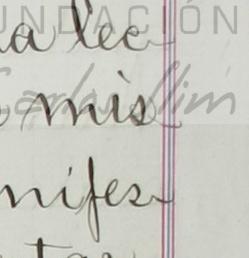 FUNDACIÓN
a lec
Carlos Slim
mis
nifes
tar